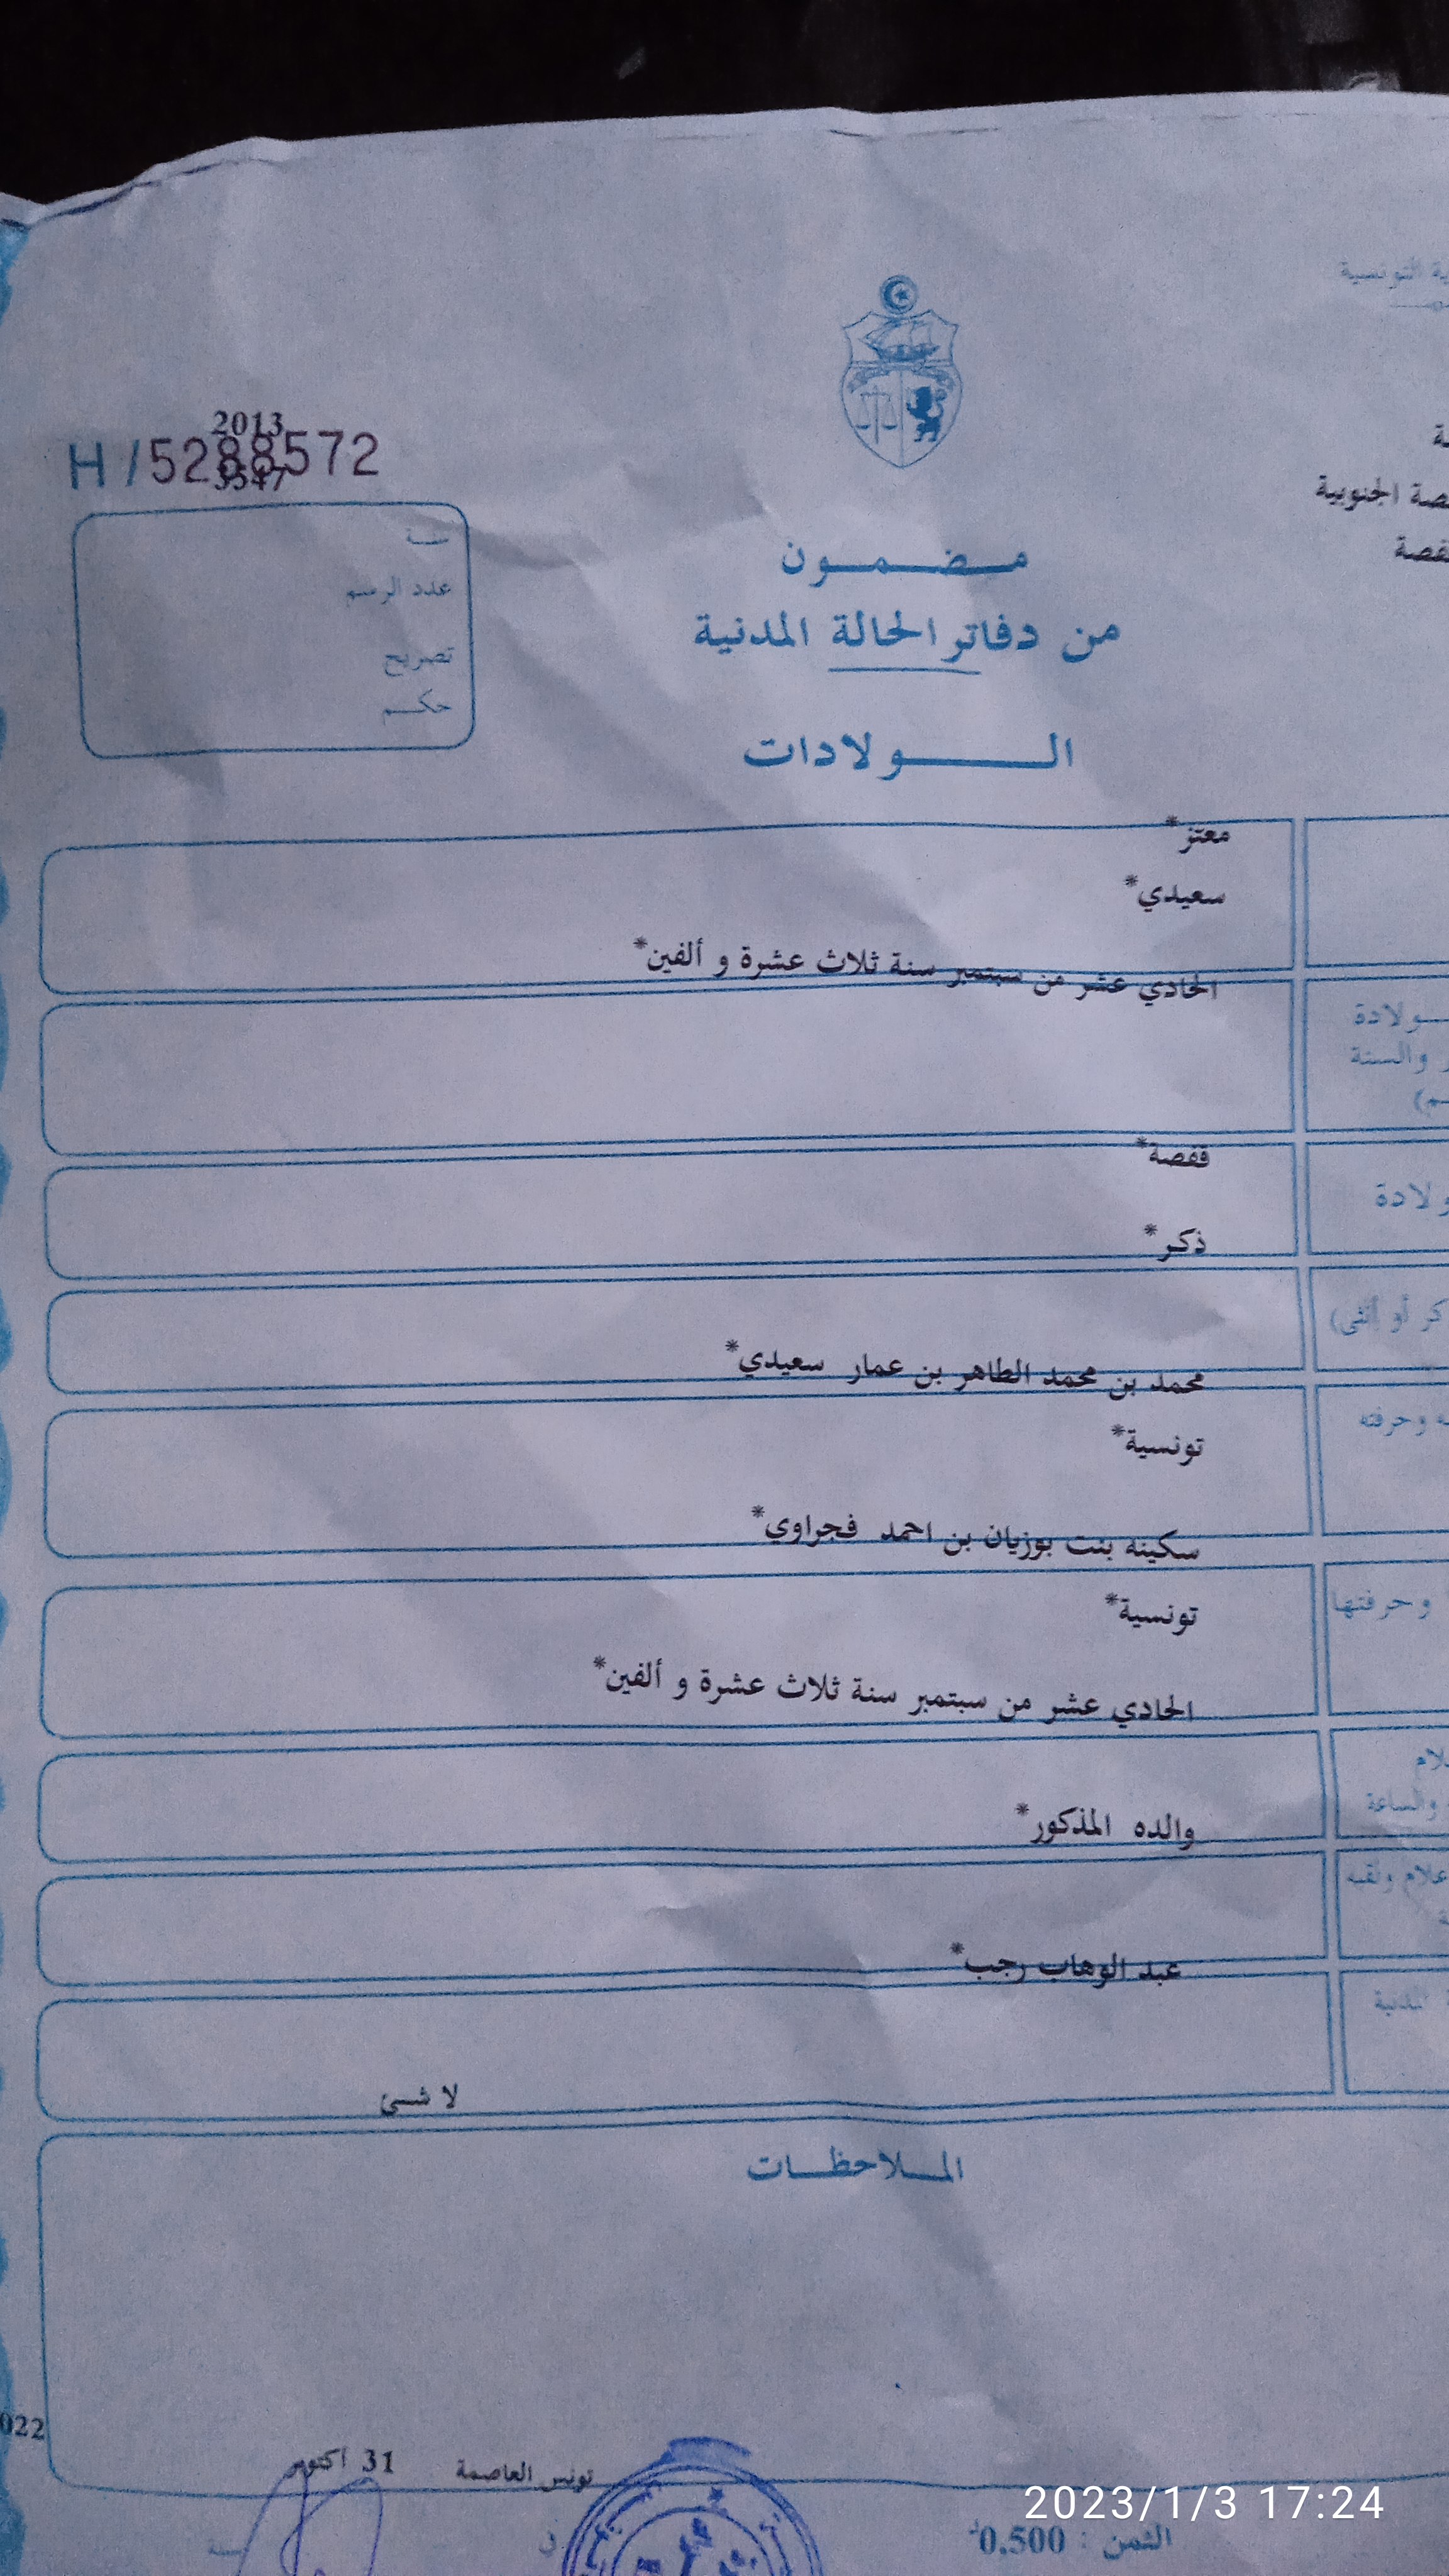 التونسية
2013
H/5288572
3547
الجنوبية
مضمون
من دفاتر الحالة المدنية
الولادات
سنة
عدد الرسم
تصريح
حكم
معتز*
سعيدي*
الحادي عشر من سبتمبر سنة ثلاث عشرة و ألفين*
والسنة
قفصة*
ذكر*
أو أنثى)
محمد بن محمد الطاهر بن عمار سعيدي*
وحرفته
تونسية*
سكينه بنت بوزيان بن احمد فجراوي*
وحرفتها
تونسية*
الحادي عشر من سبتمبر سنة ثلاث عشرة و ألفين*
والساعة
والده المذكور*
ولقبه
عبد الوهاب رجب*
المدنية
لا شئ
الملاحظات
022
تونس العاصمة 31 اكتوبر
في سنة
الثمن : 0.500د
2023/1/3 17:24